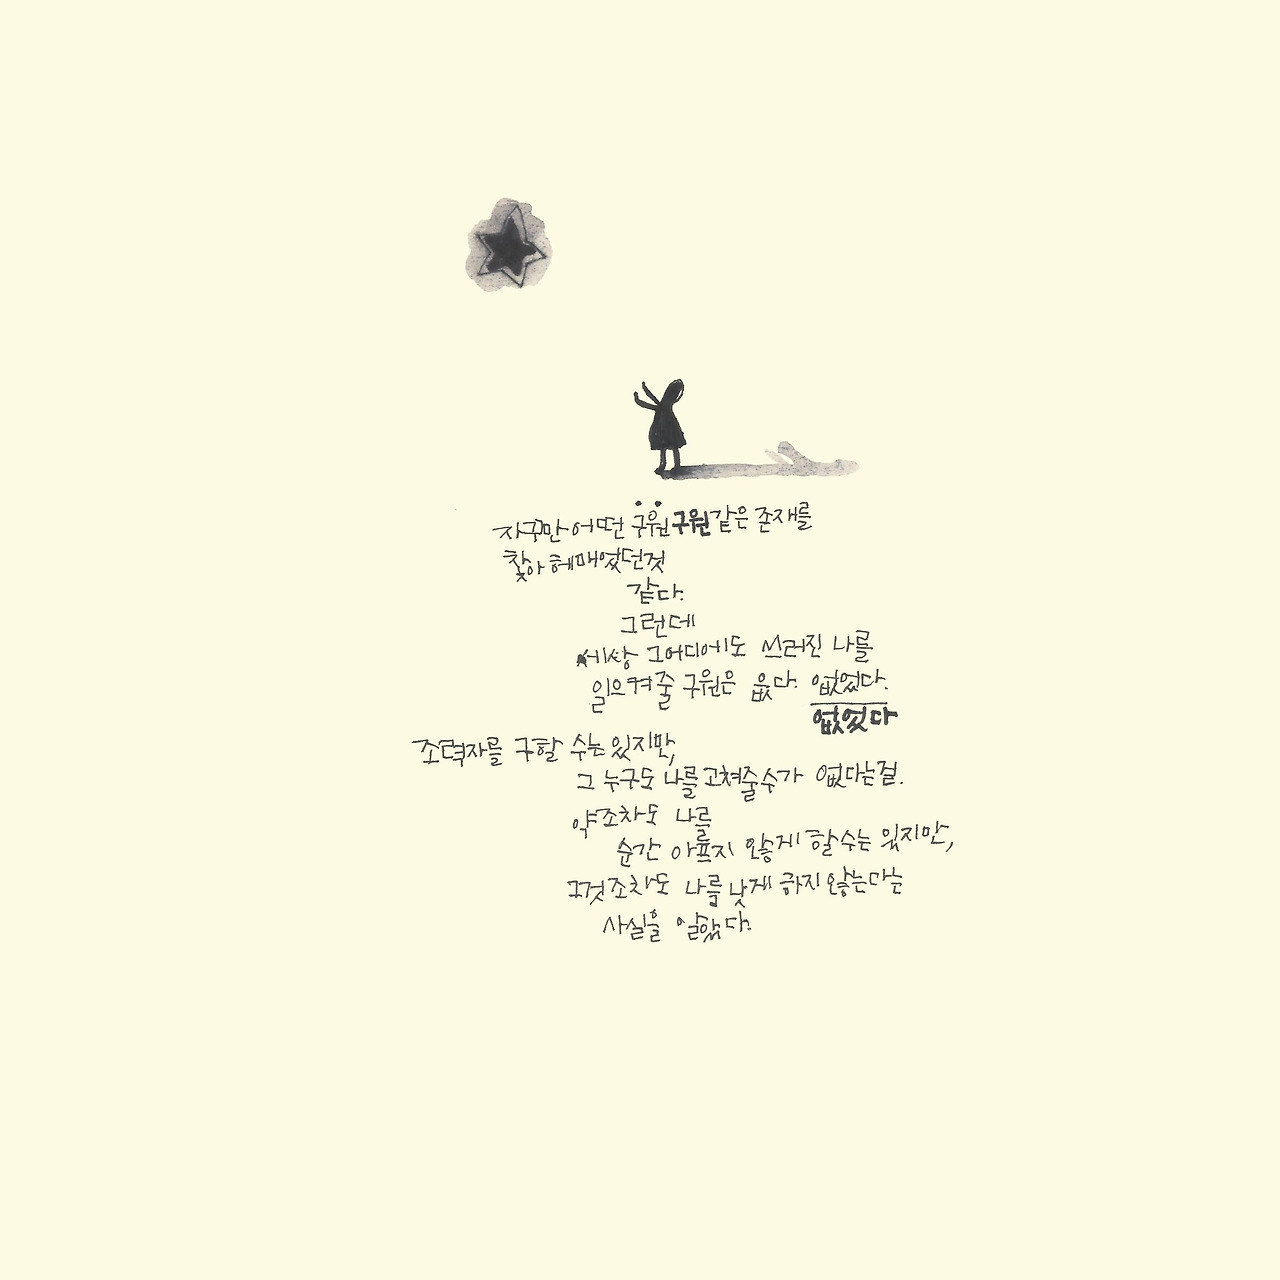 자꾸만 어떤 구원 구원같은 존재를
찾아 헤매었던것
같다.
그런데
세상 그어디에도 쓰러진 나를
일으켜줄 구원은 읎다. 없었다.
없었다
조력자를 구할 수는 있지만,
그 누구도 나를 고쳐줄수가 없다는걸.
약조차도 나를
순간 아프지 않게 할수는 있지만,
그것조차도 나를 낫게 하지않는다는
사실을 알았다.